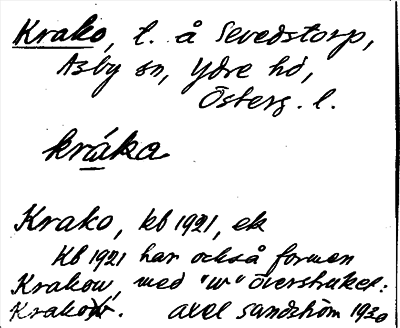 Krako, t. å Sevedstorp,
Asby sn, Ydre hd,
Österg. l.
kråka
Krako, kb 1921, ek
Kb 1921 har också formen
Krakow, med "w" överstruket:
Krakow. Axel Sandström 1930